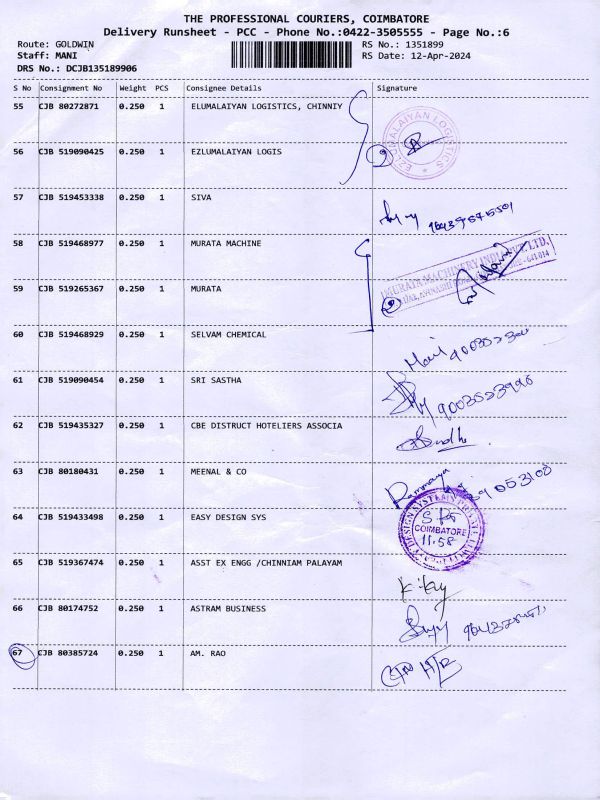 THE PROFESSIONAL COURIERS, COIMBATORE
Delivery Runsheet - PCC - Phone No.:0422-3505555 - Page No.:6
Route: GOLDWIN RS No.: 1351899
Staff: MANI RS Date: 12-Apr-2024
DRS No.: DCJB135189906
S No Consignment No Weight PCS Consignee Details Signature
55 CJB 80272871 0.250 1 ELUMALAIYAN LOGISTICS, CHINNIY
EZLUMALAIYAN LOGISTICS
56 CJB 519090425 0.250 1 EZLUMALAIYAN LOGIS
2
57 CJB 519453338 0.250 1 SIVA
58 CJB 519468977 0.250 1 MURATA MACHINE
MURATA MACHINERY INDIA PVT. LTD.
641 014
59 CJB 519265367 0.250 1 MURATA
2
60 CJB 519468929 0.250 1 SELVAM CHEMICAL
Mani
61 CJB 519090454 0.250 1 SRI SASTHA
9003523990
62 CJB 519435327 0.250 1 CBE DISTRUCT HOTELIERS ASSOCIA
63 CJB 80180431 0.250 1 MEENAL & CO
64 CJB 519433498 0.250 1 EASY DESIGN SYS
DESIGN SYSTEM PRIVATE LIMITED
COIMBATORE
11.58
65 CJB 519367474 0.250 1 ASST EX ENGG /CHINNIAM PALAYAM
66 CJB 80174752 0.250 1 ASTRAM BUSINESS
67 CJB 80385724 0.250 1 AM. RAO